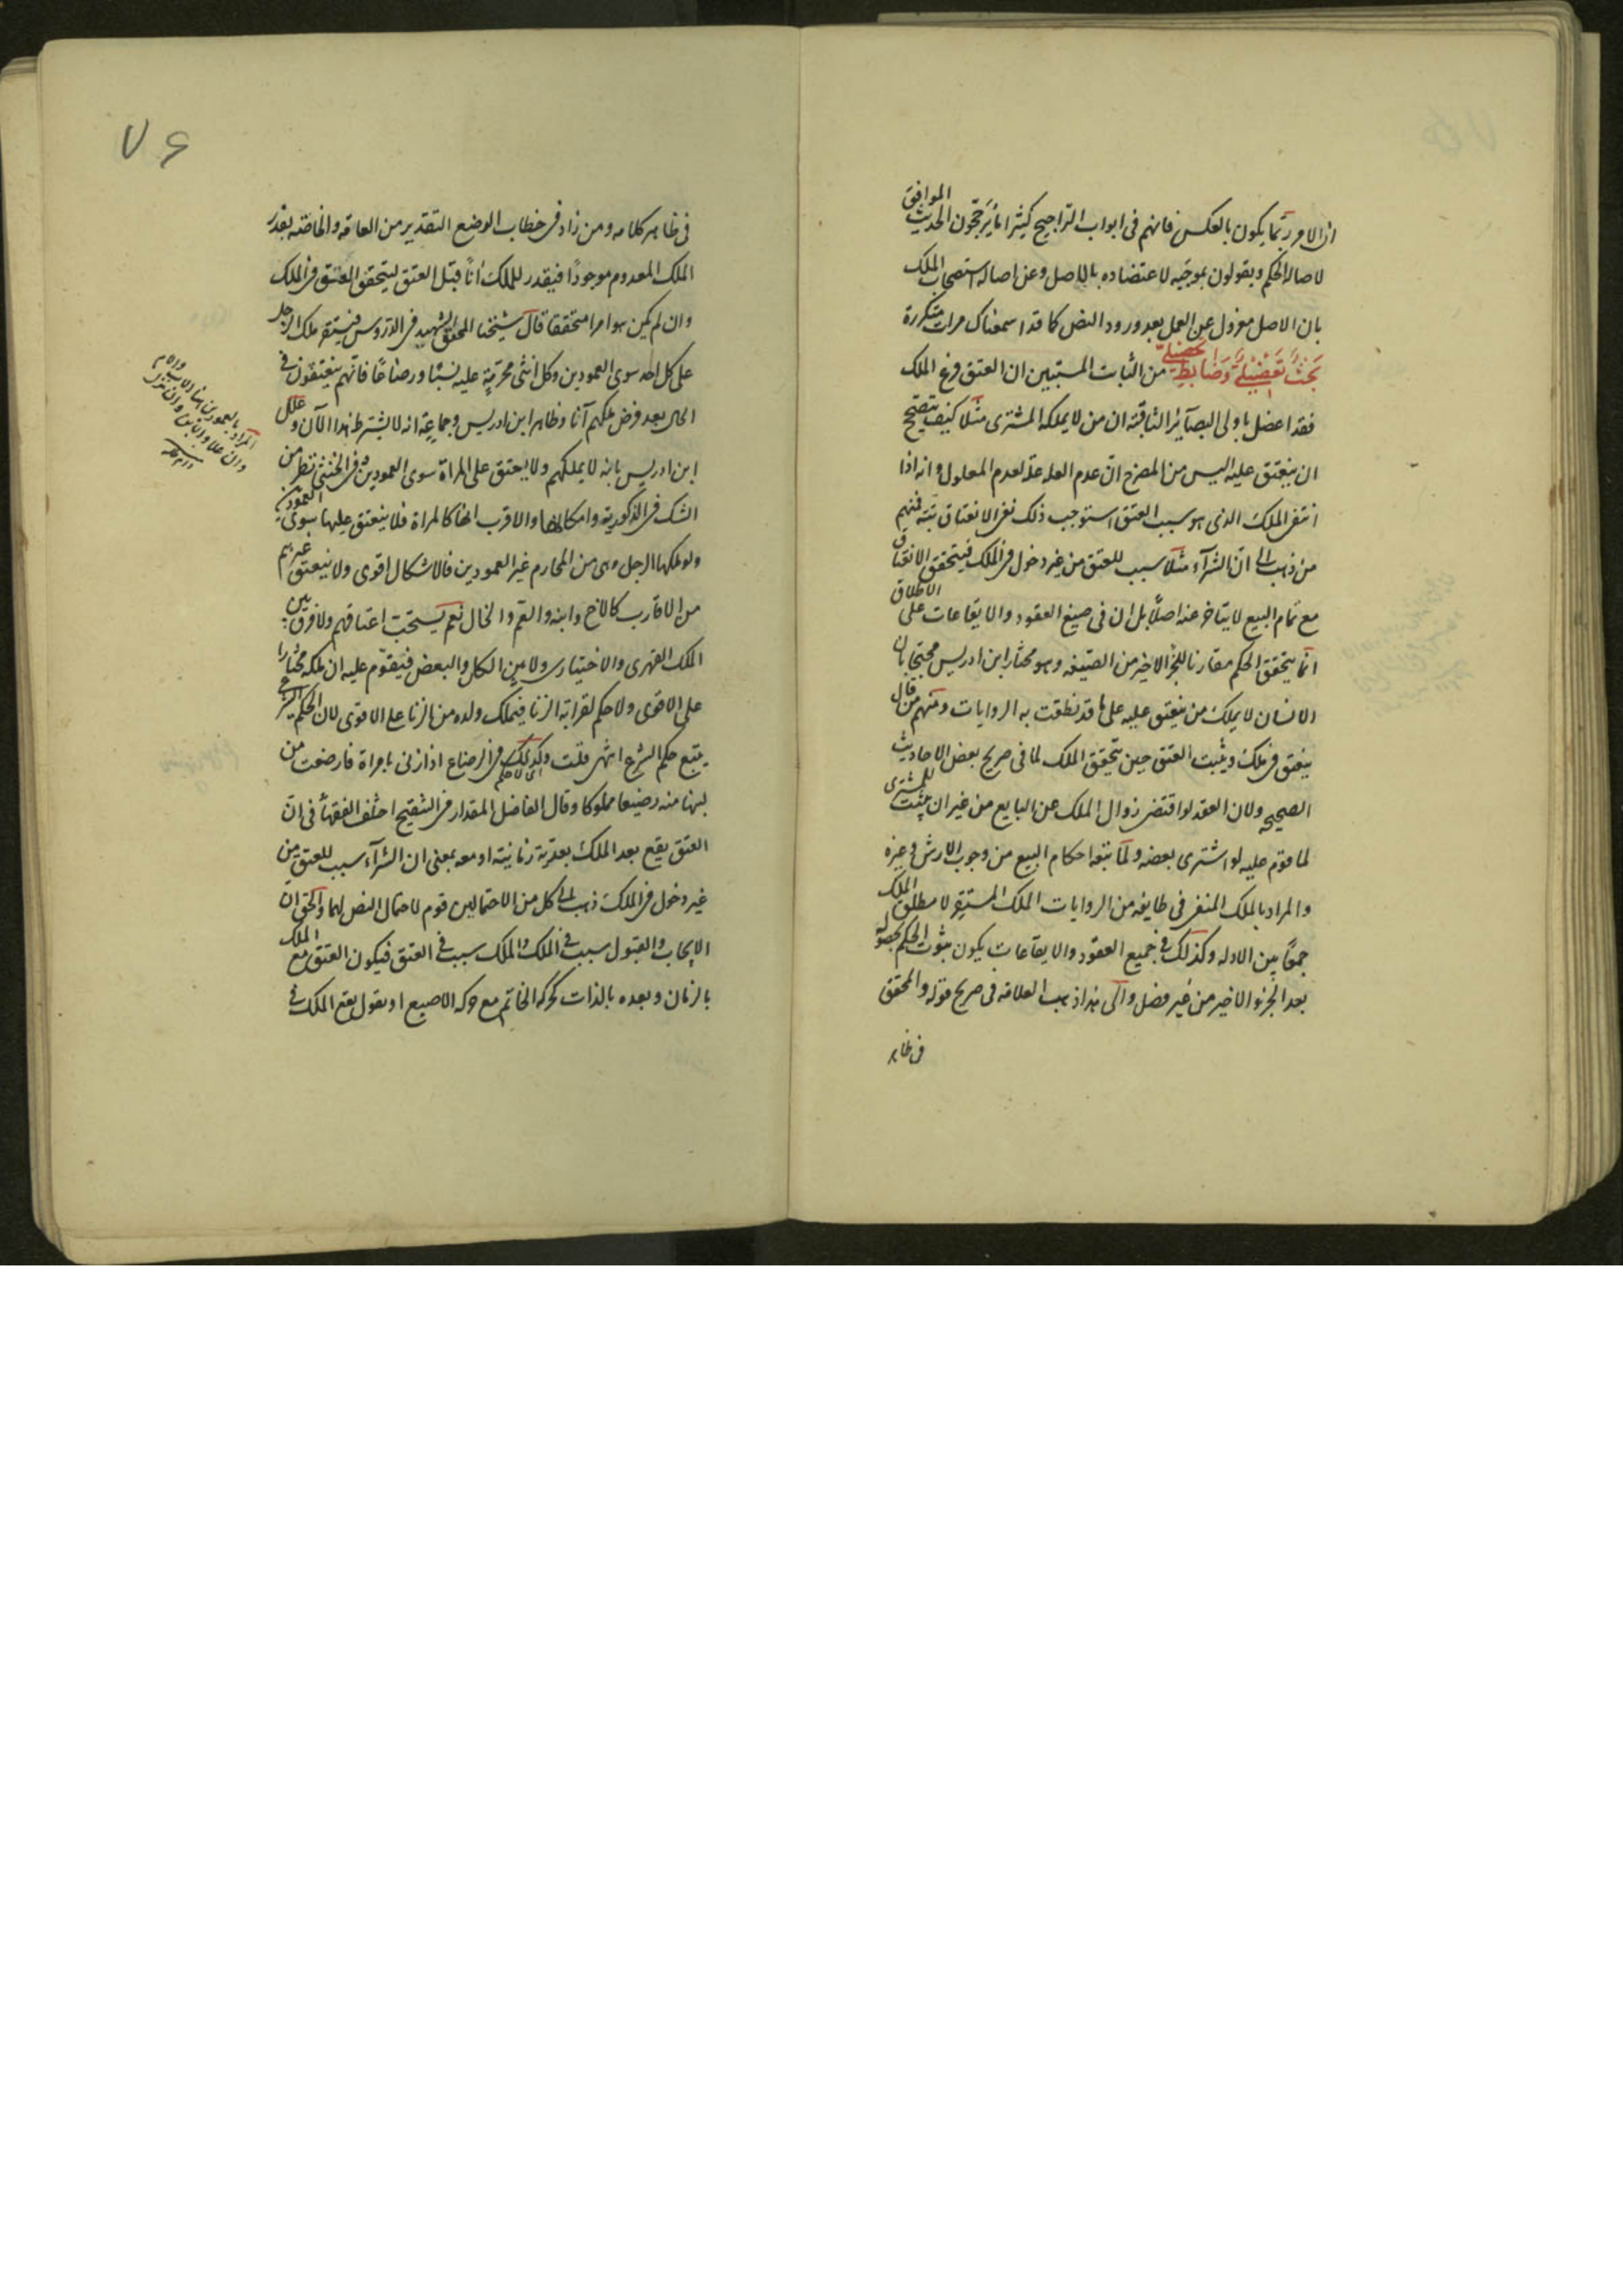 ان الامر ربما يكون بالعكس فانهم فى ابواب التراجيح كثيرا ما يرجحون الحديث الموافق
لاصالة الحكم ويقولون بموجبه لاعتضاده بالاصل وعن اصالة استصحاب الملك
بان الاصل معزول عن العمل بعد ورود النص كما قد اسمعناك مرات متكررة
بحث تعضيلى وضابط تحصيلى من الثابت المستبين ان العتق فرع الملك
فقد اعضل باولى البصآئر الثاقبة ان من لا يملكه المشترى مثلا كيف يتصحح
ان ينعتق عليه اليس من المصرح ان عدم العله علة لعدم المعلول وانه اذا
انتفى الملك الذى هو سبب العتق استوجب ذلك نفى الانعتاق بتة فمنهم
من ذهب الى ان الشرآء مثلا سبب للعتق من غير دخول فى الملك فيتحقق الانعتاق
مع تمام البيع لا يتاخر عنه اصلا بل ان فى صيغ العقود والايقاعات على الاطلاق
انما يتحقق الحكم مقارنا للجزء الاخير من الصيغه وهو مختار ابن ادريس محتجا بان
الانسان لا يملك من ينعتق عليه على ما قد نطقت به الروايات ومنهم من قال
ينعتق فى ملك ويثبت العتق حين يتحقق الملك لما فى صريح بعض الاحاديث
الصحيحه ولان العقد لو اقتضى زوال الملك عن البايع من غير ان يثبت للمشترى
لما قوم عليه لو اشترى بعضه ولما تبعه احكام البيع من وجوب الارش وغيره
والمراد بالملك المنفى فى طايفه من الروايات الملك المستقر لا مطلق الملك
جمعا بين الادله وكذلك فى جميع العقود والايقاعات يكون ثبوت الحكم بحصوله
بعد الجزو الاخير من غير فصل والى هذا ذهب العلامه فى صريح قوله والمحقق
فى ظاهر
٧۶
فى ظاهر كلامه ومن زاد فى خطاب الوضع التقدير من العامه والخاصه يقدر
الملك المعدوم موجودا فيقدر للملك انا قبل العتق ليتحقق العتق فى الملك
وان لم يكن هو امرا متحققا قال شيخنا المحقق الشهيد فى الدروس فيستقر ملك الرجل
على كل احد سوى العمودين وكل انثى محرمة عليه نسبا ورضاعا فانهم ينعتقون فى
الحال بعد فرض ملكهم آنا وظاهر ابن ادريس وجماعة انه لا يشترط هذا الآن وعلل
ابن ادريس بانه لا يملكهم ولا يعتق على المراة سوى العمودين وفى الخنثى نظر من
الشك فى الذكورية وامكانها والاقرب انها كالمراة فلا ينعتق عليها سوى العمودين
ولو ملكها الرجل وهى من المحارم غير العمودين فالاشكال اقوى ولا ينعتق غيرهم
من الاقارب كالاخ وابنه والعم والخال نعم يستحب اعتاقهم ولا فرق بين
الملك القهرى والاختيارى ولا بين الكل والبعض فيقوم عليه ان ملكه مختارا
على الاقوى ولا حكم لقرابة الزنا فيملك ولده من الزنا على الاقوى لان الحكم الشرعى
يتبع حكم الشرع انتهى قلت وكذلك لا حكم فى الرضاع اذا زنى بامراة فارضعت من
لبنها منه رضيعا مملوكا وقال الفاضل المقداد فى التنقيح اختلف الفقهآء فى ان
العتق يقع بعد الملك بعدية زمانية او معه بمعنى ان الشرآء سبب للعتق من
غير دخول فى الملك ذهب الى كل من الاحتمالين قوم لاحتمال النص لهما والحق ان
الايجاب والقبول سبب فى الملك والملك سبب فى العتق فيكون العتق مع الملك
بالزمان وبعده بالذات كحركة الخاتم مع حركة الاصبع او نقول يقع الملك فى
المراد بالعمودين هنا الاب والام
وان علا والابن وان نزل